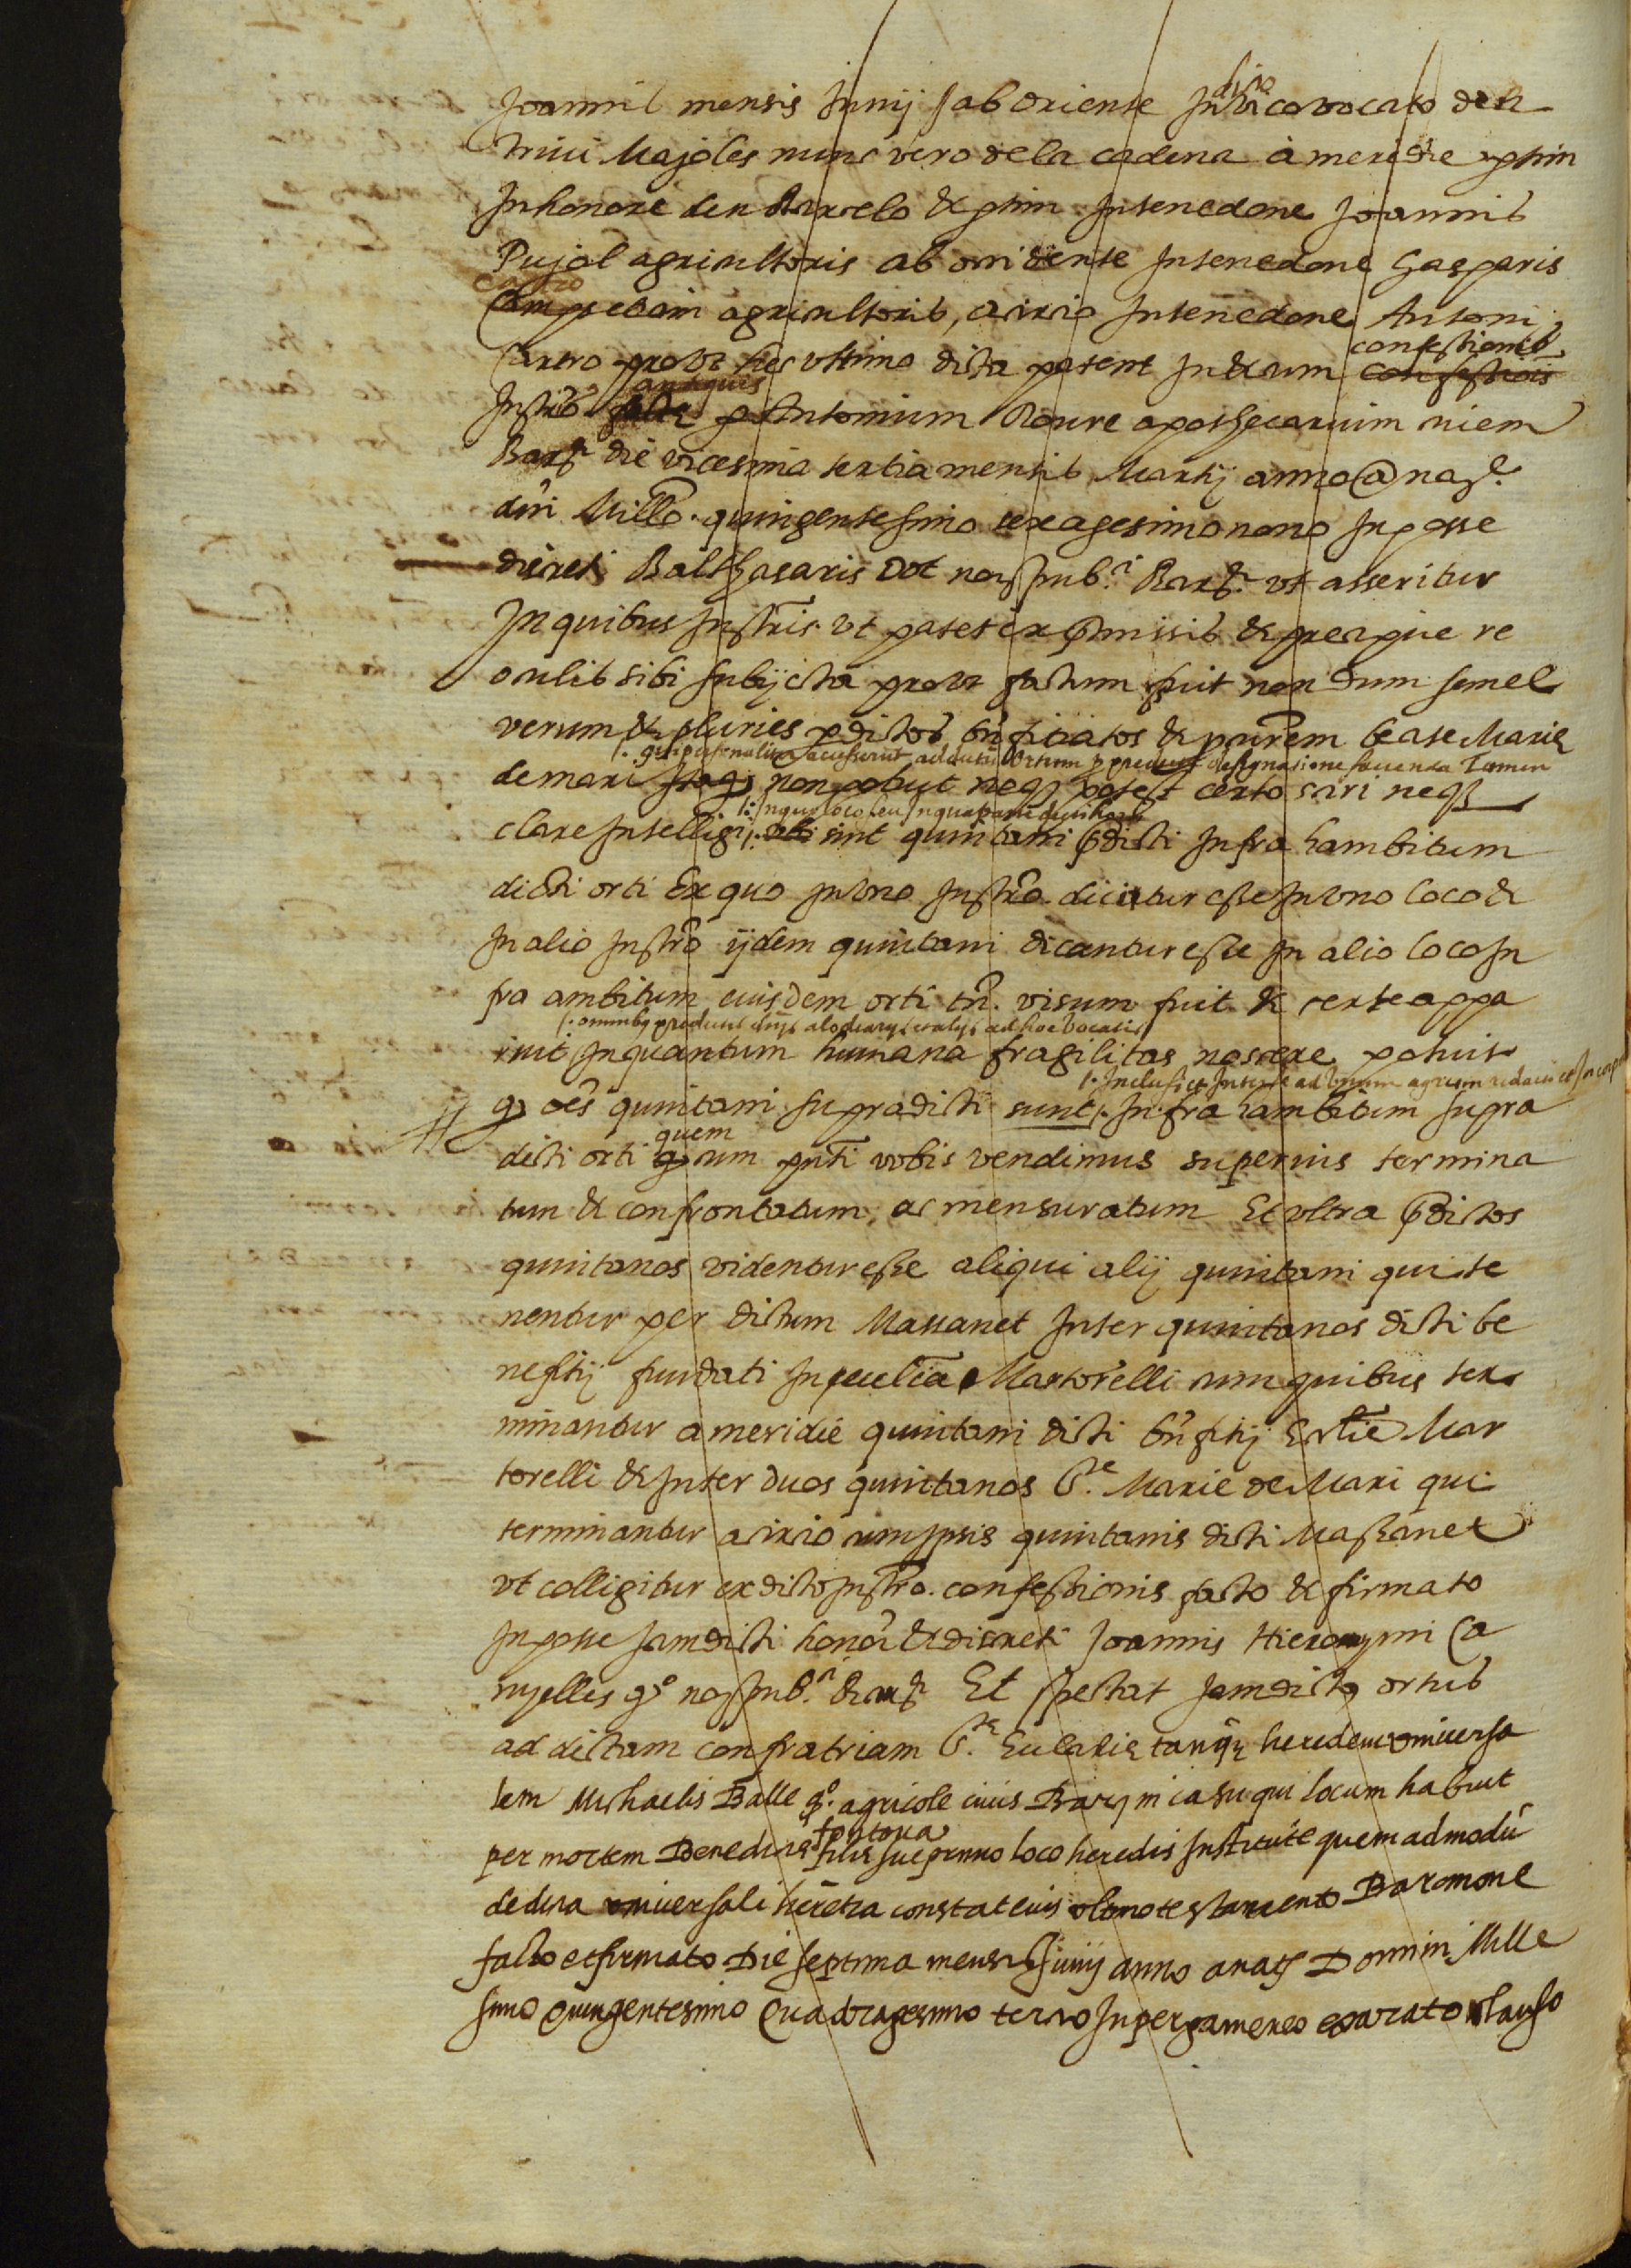 dicto
Joannis mensis Junij / ab oriente In vico vocato den
Trini Majoles nunc vero de la cadena a meridie ptim
In honore den Barcelo & ptim In tenedone Joannis
Pujol agricultoris ab occidente In tenedone Gasparis
Castro
Campderam agricultoris, a circio In tenedone Antoni
Castro prout hec ultimo dicta patent In & cum
confessionis
confessionis
antiquis
Instris p Antonium Roure apothecarium civem
Barᵉ die vicesima tertia mensis Martij anno @ natᵉ
dni Millo. quingentesimo sexagesimo nono In posse
discreti Balthasaris Dot not pub.ⁱ Barᵉ ut asseritur
In quibus Instris ut patet ex pmissis & precipue re
oculis sibi subijcta prout factum fuit non dum semel
verum & pluries pdictos bnficiatos & priorem beate Marie
/. qui personaliter accesserunt ad dictum Ortum p predicta designatione facienda Tamen
de mari non potuit neq potest certo sciri neq
/: In quo loco seu In qua parte dicti horti
clare Intelligi /. ubi sint quintani pdicti Infra hambitum
dicti orti Ex quo In uno Instro dicitur esse In uno loco &
In alio Instro ijdem quintani dicantur esse In alio loco In
fra ambitum eiusdem orti tn. visum fuit & certe appa
/. omnibus predictis dnijs alodiarijs et alijs ad hoc vocatis
ruit In quantum humana fragilitas noscere potuit
/. Inclusi et Inserte ad unum agrum redacti et
q oes quintani supradicti sunt /. Infra hambitum supra
quem
dicti orti cum pnti vobis vendimus superius termina
tum & confrontatum, ac mensuratum Et ultra pdictos
quintanos videntur esse aliqui alij quintani qui te
nentur per dictum Massanet Inter quintanos dicti be
neficij fundati In ecclia Martorelli cum quibus ter
minantur a meridie quintani dicti bnficij Ecclie Mar
torelli & Inter duos quintanos Bᵉ. Marie de Mari qui
terminantur a circio cum Ipsis quintanis dicti Massanet
ut colligitur ex dicto Instro. confessionis facto & firmato
In posse Jamdicti honor & discreti Joannis Hieronymi Ca
nyelles qᵒ not pub.ⁱ Barᵉ Et spectat Jamdictus ortus
ad dictam confratriam Sᵗᵉ. Eulalie tanq heredem universa
lem Michaelis Balle qᵒ. agricole civis Barᵉ in casu qui locum habuit
fontova
per mortem Benedicte filie sue primo loco heredis Institute quem admodu
de dicta universali heretia constat eius ultimo testamento Barcinone
facto et firmato Die septima mensis Junij anno a natᵉ Domini Mille
simo Quingentesimo Quadragesimo tercio In pergameneo exarato clauso